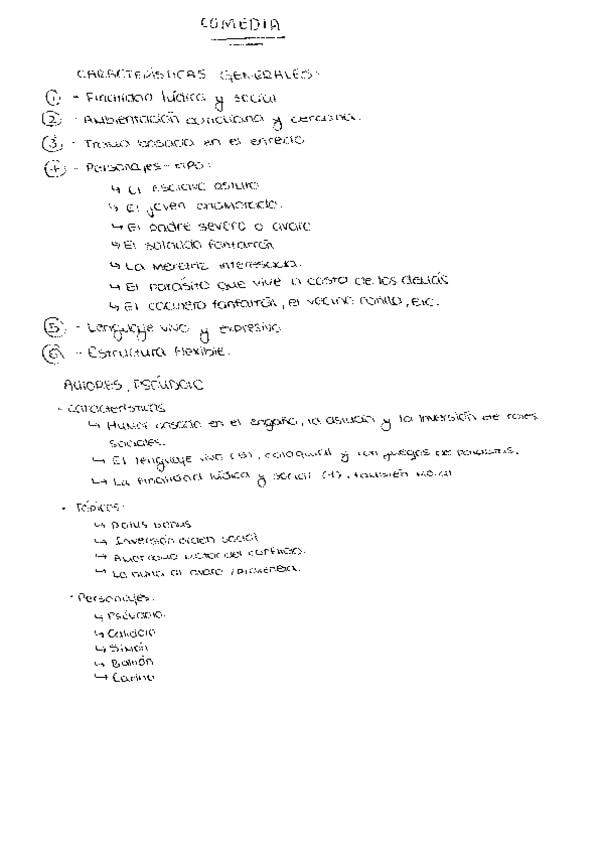 COMEDIA
CARACTERÍSTICAS GENERALES:
① - Finalidad lúdica y social
② - Ambientación cotidiana y cercana.
③ - Trama basada en el enredo
④ - Personajes-tipo:
↳ El esclavo astuto
↳ El joven enamorado.
↳ El padre severo o avaro
↳ El soldado fanfarrón
↳ La meretriz interesada.
↳ El parásito que vive a costa de los demás
↳ El cocinero fanfarrón, el vecino, etc.
⑤ - Lenguaje vivo y expresivo
⑥ - Estructura flexible.
AUTORES, PSÉUDOLO
- Características
↳ Humor basado en el engaño, la astucia y la inversión de roles
sociales.
↳ El lenguaje vivo (5), coloquial y con juegos de palabras.
↳ La finalidad lúdica y social (1), también moral
- Tópicos:
↳ Dolus bonus
↳ Inversión orden social
↳ Amor como motor del conflicto.
↳ La burla al avaro
- Personajes:
↳ Pséudolo.
↳ Calidoro
↳ Simón
↳ Balión
↳ Carino